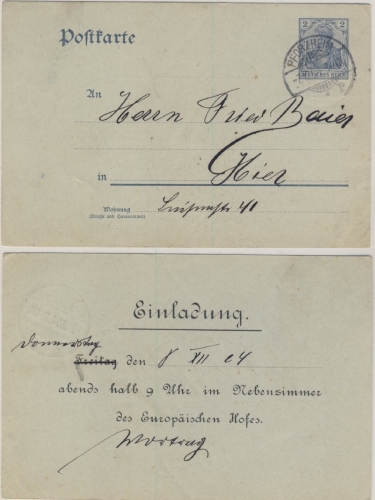 Postkarte
2 2
DEUTSCHES REICH
PFORZHEIM
An
Herrn Fried Baier
in
Hier
Wohnung
(Straße und Hausnummer)
41
Einladung.
Donnerstag
Freitag den 8 XII 04
abends halb 9 Uhr im Nebenzimmer
des Europäischen Hofes.
Vortrag